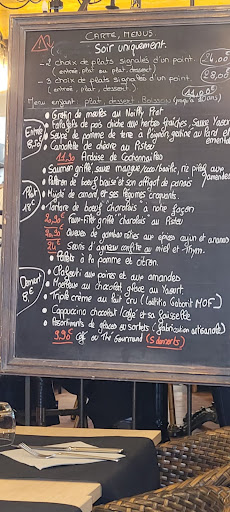 CARTE, MENUS
Soir uniquement.
- 2 choix de plats signalés d'un point. 24.00€
(entrée, plat ou plat, dessert)
- 3 choix de plats signalés d'un point. 28.00€
(entrée, plat, dessert)
Menu enfant plat, dessert Boisson (jusqu'à 10 ans) 11.00€
Entrée
• Gratin de moules au Noilly Prat
• Falafels de pois chiche aux herbes fraîches, Sauce Yaourt
• de pomme de terre à l'oignon gratiné au lard et
emmental
• de chèvre au Pistou
11.90 Ardoise de Cochonnailles
Plat
18€
• Saumon grillé, sauce mangue/coco/basilic, riz pilaf aux
amandes
• de bœuf braisé et son de panais
• de canard et ses légumes croquants.
• Tartare de bœuf Charolais à notre façon
20.90€ Faux-Filet grillé Charolais au Pistou
Gambas rôties aux épices cajun et ananas
21€ Souris d'agneau confite au miel et Thym.
Dessert
8€
• à la pomme et citron.
• Clafouti aux poires et aux amandes
• Moelleux au chocolat, glace au Yaourt.
• Triple crème au lait cru (Laëtitia Gaborit MOF)
• Cappuccino chocolat/café et sa
• Assortiments de glaces ou sorbets (fabrication artisanale)
9.90€ Café ou Thé Gourmand (5 desserts)